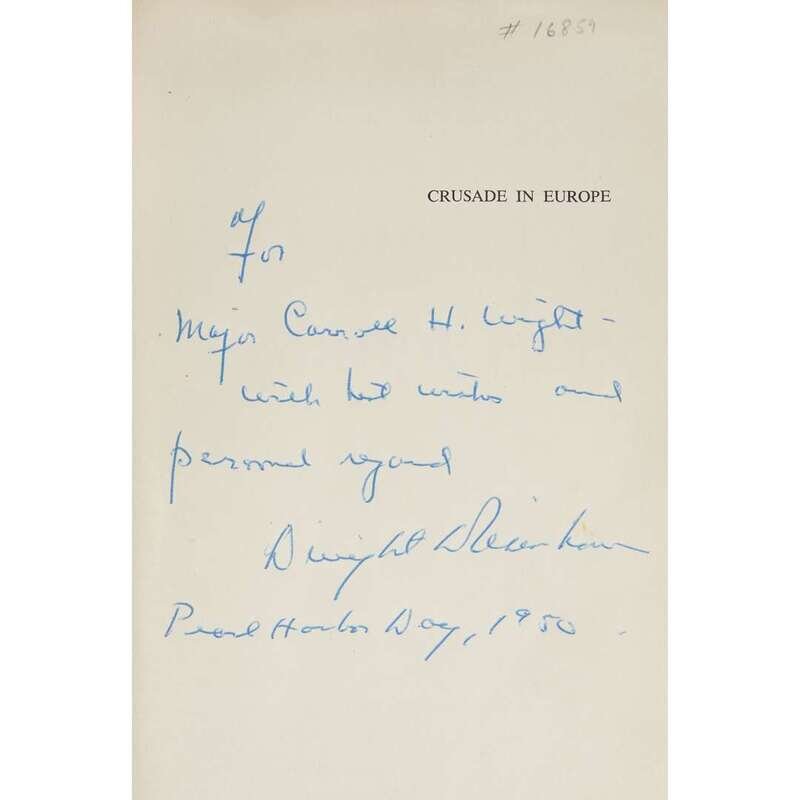 # 16859
CRUSADE IN EUROPE
For
Major Carroll H. Wright –
with best wishes and
personal regard
Dwight D Eisenhower
Pearl Harbor Day, 1950.